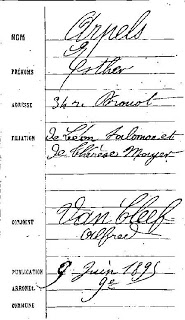 NOM Arpels
PRÉNOMS Esther
ADRESSE 34 r Drouot
FILIATION de Léon Salomon et
de Thérèse Mayer
CONJOINT Van Cleef
Alfred
PUBLICATION 9 Juin 1895
ARRONDT 9e
COMMUNE